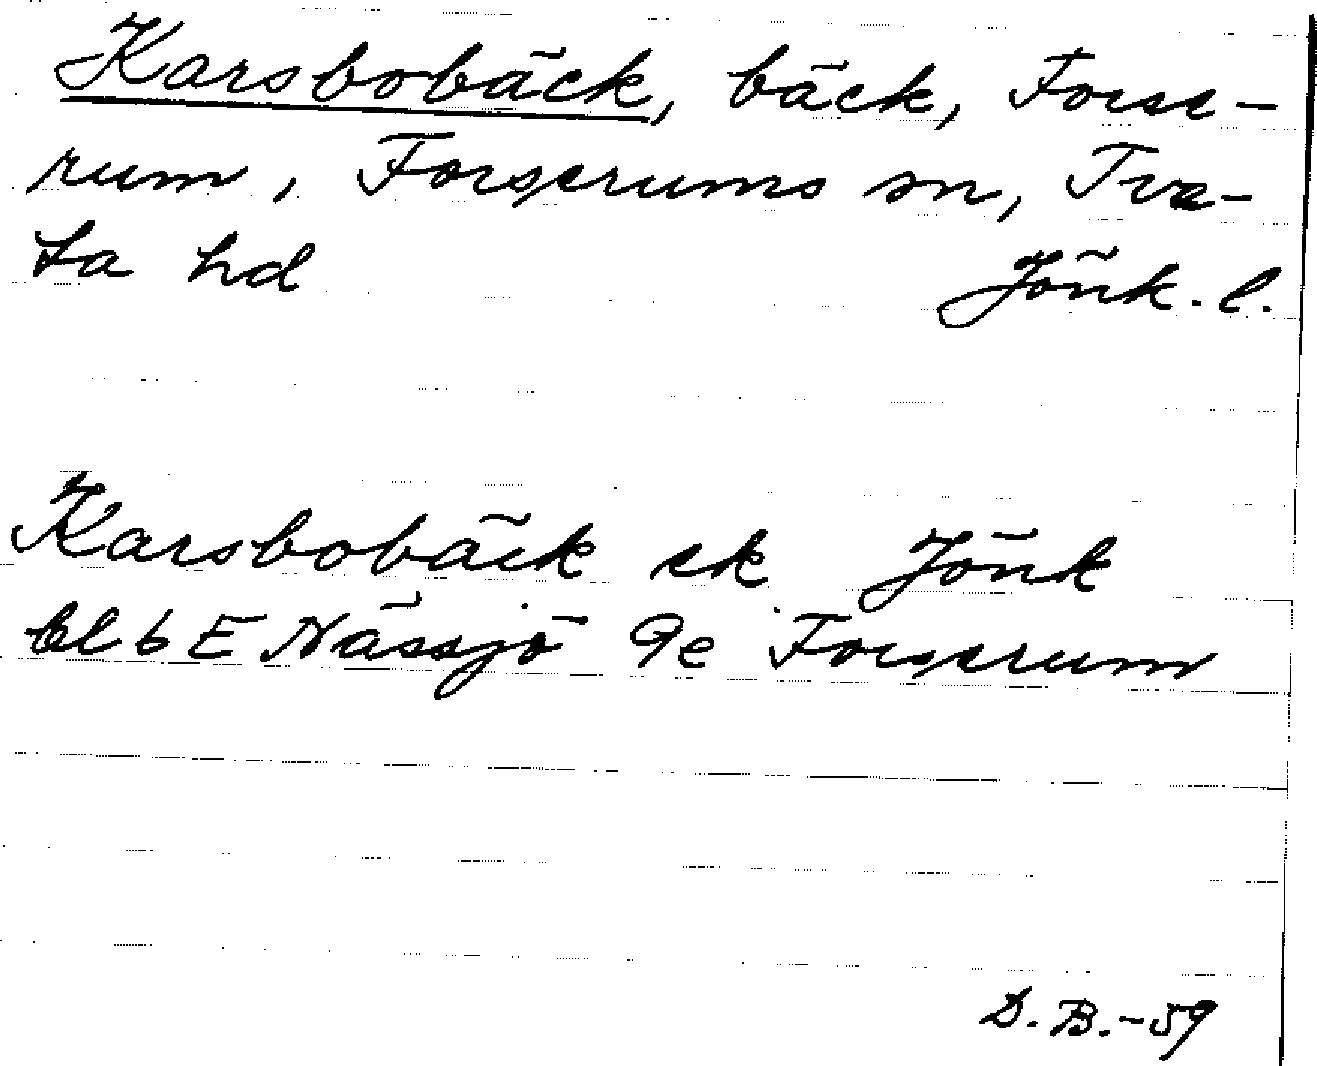 Karsbobäck, bäck, Forse-
rum, Forserums sn, Tve-
ta hd Jönk. l.
Karsbobäck ek Jönk
bl 6 E Nässjö 9e Forserum
D. B. - 59